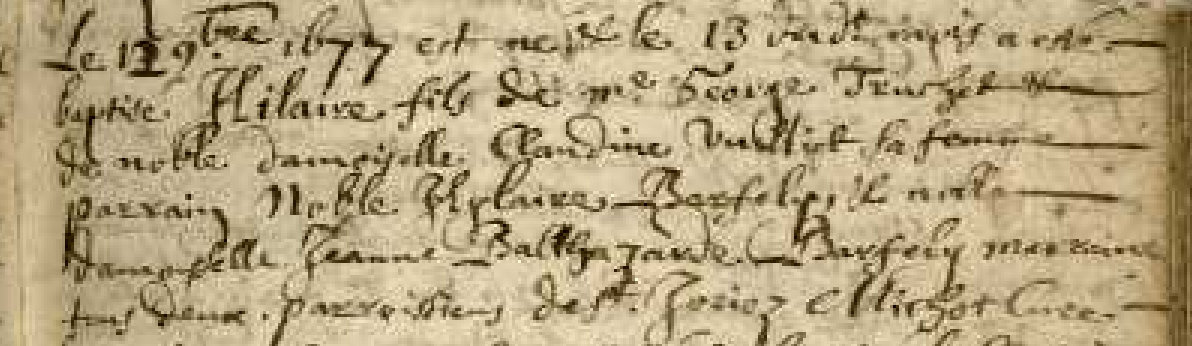 Le 12 9.bre 1677 est né & le 13 dudt mois a esté
baptisé Hilaire fils de mre George Truchet &
de noble damoiselle Claudine sa femme
parrain Noble Hylaire & noble
damoiselle Jeanne Balthazarde marraine
tous deux parroissiens de St. Curé